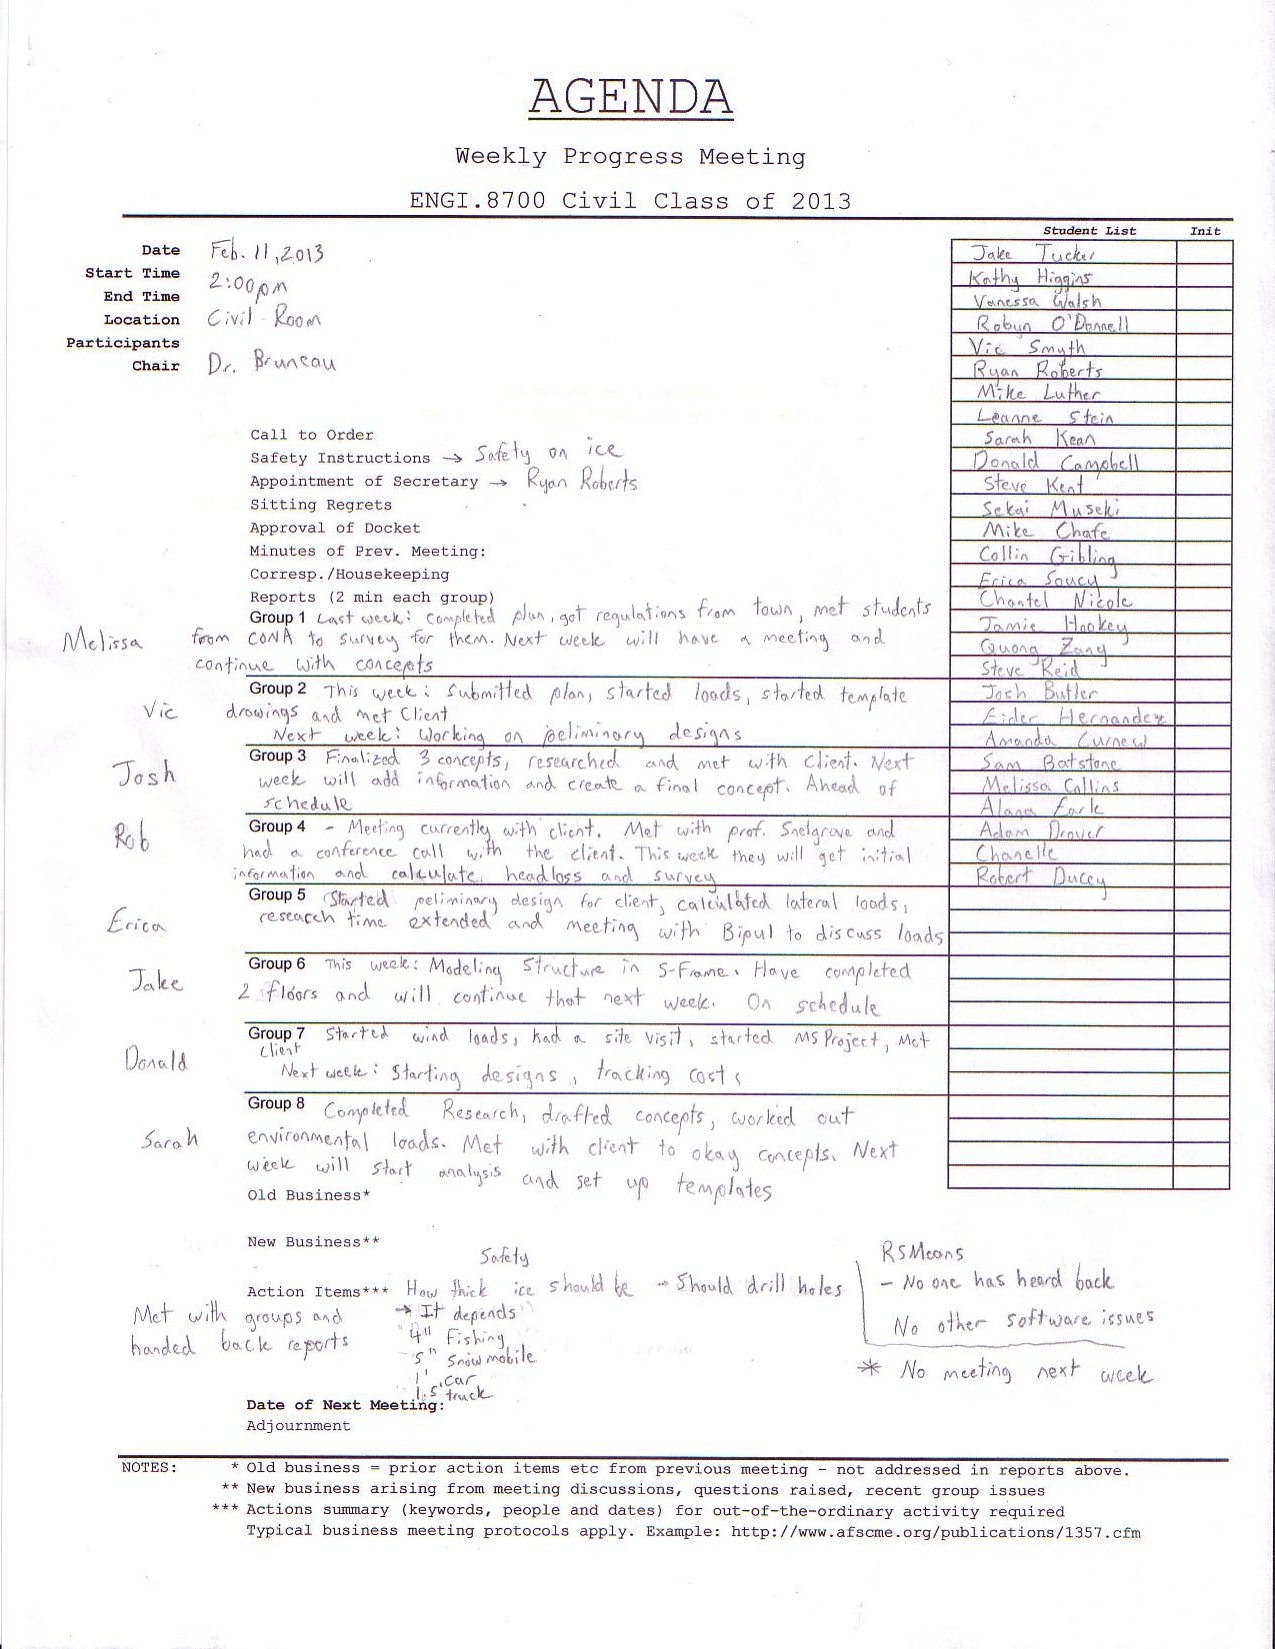 AGENDA
Weekly Progress Meeting
ENGI.8700 Civil Class of 2013
Date Feb. 11, 2013
Start Time 2:00pm
End Time
Location Civil Room
Participants
Chair Dr. Bruneau
Student List Init
Jake Tucker
Kathy Higgins
Vanessa Walsh
Robyn O'Donnell
Vic Smyth
Ryan Roberts
Mike Luther
Leanne Stein
Sarah Kean
Donald Campbell
Steve Kent
Sekai Museki
Mike Chafe
Collin Gibling
Erica Soucy
Chantel Nicole
Jamie Hookey
Quong Zang
Steve Reid
Josh Butler
Eider Hernandez
Amanda Curnew
Sam Batstone
Melissa Collins
Alana Earle
Adam Drover
Chanelle
Robert Ducey
Call to Order
Safety Instructions → Safety on ice
Appointment of Secretary → Ryan Roberts
Sitting Regrets
Approval of Docket
Minutes of Prev. Meeting:
Corresp./Housekeeping
Reports (2 min each group)
Group 1 Last week: Completed plan, got regulations from town, met students
Melissa from CONA to survey for them. Next week will have a meeting and
continue with concepts
Group 2 This week: Submitted plan, started loads, started template
Vic drawings and met Client
Next week: Working on peliminary designs
Group 3 Finalized 3 concepts, researched and met with client. Next
Josh week will add information and create a final concept. Ahead of
schedule
Group 4 - Meeting currently with client. Met with prof. Snelgrove and
Rob had a conference call with the client. This week they will get initial
information and calculate headloss and survey
Group 5 Started peliminary design for client, calculated lateral loads,
Erica research time extended and meeting with Bipul to discuss loads
Group 6 This week: Modeling Structure in S-Frame. Have completed
Jake 2 floors and will continue that next week. On schedule
Group 7 Started wind loads, had a site visit, started MS Project, Met
client
Donald Next week: Starting designs, tracking costs
Group 8 Completed Research, drafted concepts, worked out
Sarah environmental loads. Met with client to okay concepts. Next
week will start analysis and set up templates
Old Business*
New Business**
Safety
Action Items*** How thick ice should be → Should drill holes
→ It depends
4" Fishing
5" Snowmobile
1' car
1.5' truck
Met with groups and
handed back reports
RSMeans
- No one has heard back
No other software issues
* No meeting next week
Date of Next Meeting:
Adjournment
NOTES: * Old business = prior action items etc from previous meeting - not addressed in reports above.
** New business arising from meeting discussions, questions raised, recent group issues
*** Actions summary (keywords, people and dates) for out-of-the-ordinary activity required
Typical business meeting protocols apply. Example: http://www.afscme.org/publications/1357.cfm